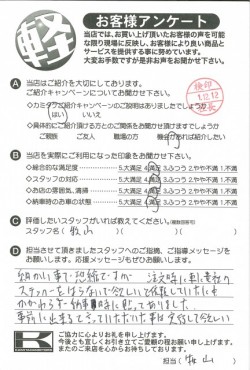 軽
お客様アンケート
当店では、お買い上げ頂いたお客様の声を可能
な限り現場に反映し、お客様により良い商品と
サービスを提供する事に努めています。
大変お手数ですが是非お声をお聞かせ下さい。
A 当店はご紹介を大切にしております。
ご紹介キャンペーンについてお聞かせ下さい。
◇カミタウンご紹介キャンペーンのご説明はありましたでしょうか
はい いいえ
◇具体的にご紹介頂ける方とのご関係をお聞かせ頂けますでしょうか
ご親族 ご友人 職場の方
B 当店を実際にご利用になられた印象をお聞かせ下さい。
◇総合的な満足度 5.大満足 4.満足 3.ふつう 2.やや不満 1.不満
◇スタッフの対応 5.大満足 4.満足 3.ふつう 2.やや不満 1.不満
◇お店の雰囲気、清掃 5.大満足 4.満足 3.ふつう 2.やや不満 1.不満
◇納車時のお車の状態 5.大満足 4.満足 3.ふつう 2.やや不満 1.不満
C 評価したいスタッフがいれば教えてください。(複数回答可)
スタッフ名( 牧山 )
D 担当させて頂きましたスタッフへのご指摘、ご指導メッセージを
お願いします。応援メッセージもぜひお願いします。
細かい事で恐縮ですが 注文時に
ステッカーをはらないで欲しいと依頼していたにも
かかわらず納車時に貼ってありました。
事前に出来ると言っていただいた事は完結して欲しい
K
ご協力に心よりお礼を申し上げます。
今後とも宜しくお引き立てご愛顧の程お願い申し上げます。
またのご来店を心からお待ちしております。
担当 牧山